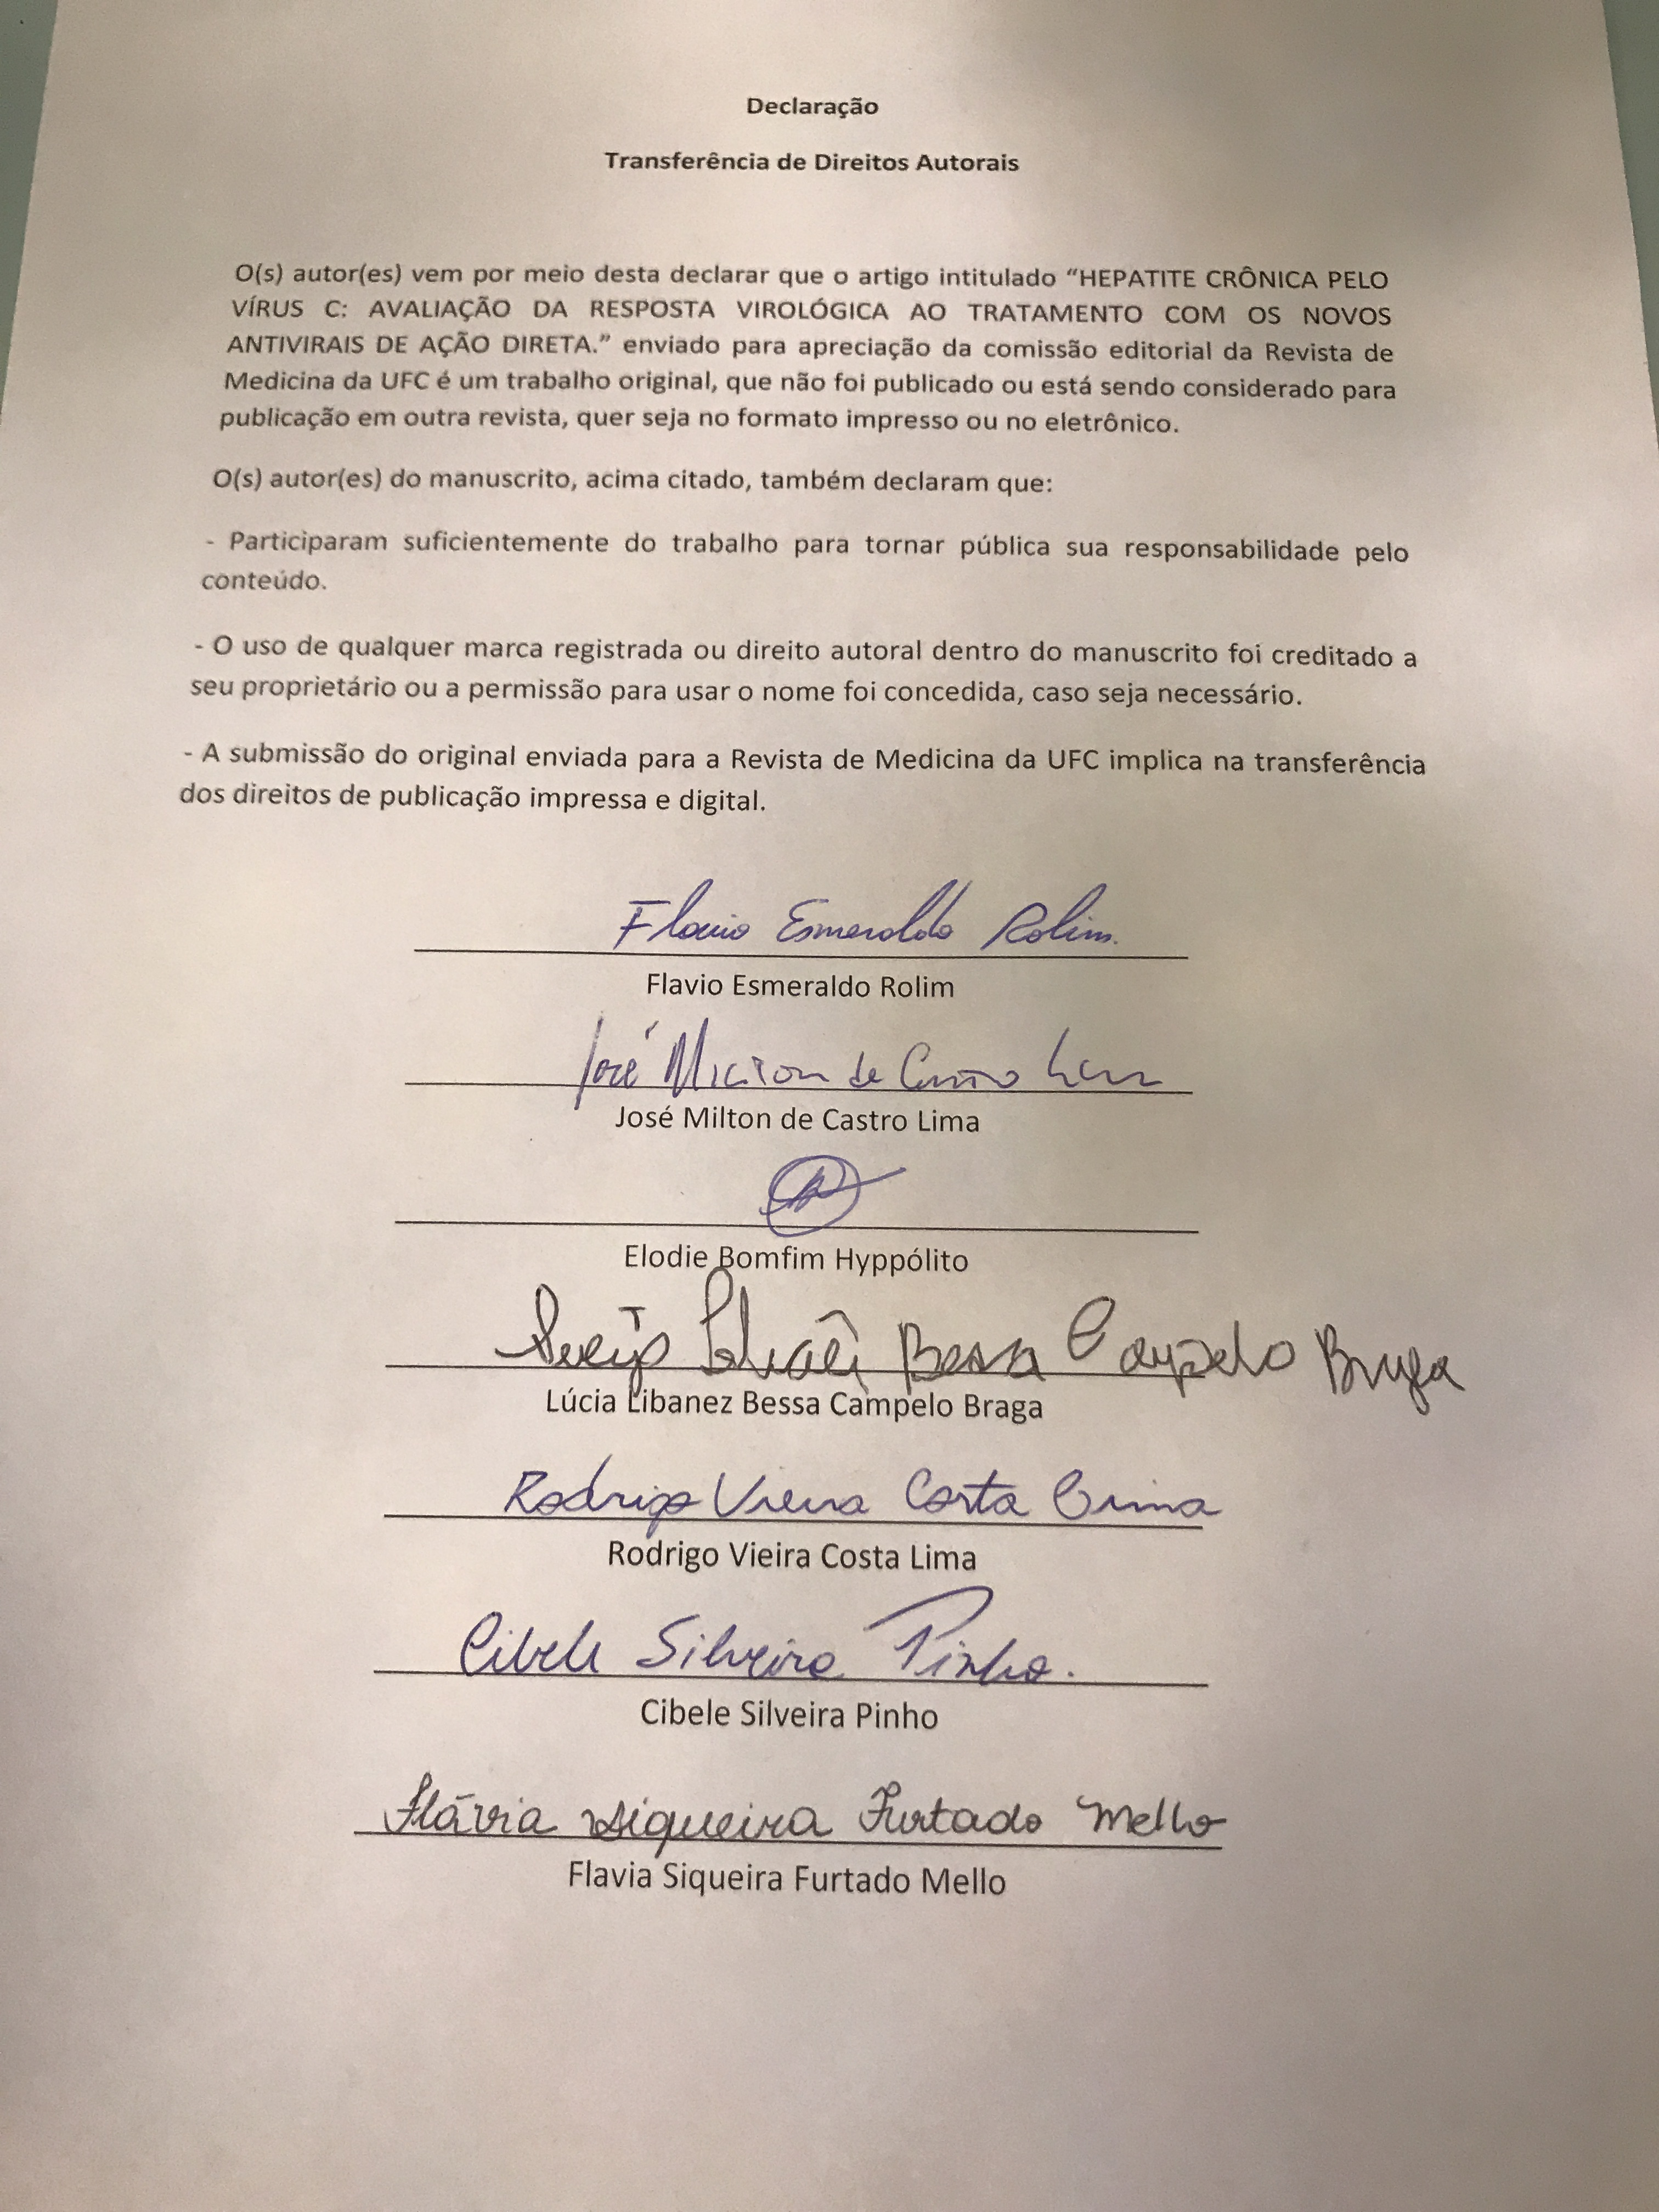 Declaração
Transferência de Direitos Autorais
O(s) autor(es) vem por meio desta declarar que o artigo intitulado “HEPATITE CRÔNICA PELO
VÍRUS C: AVALIAÇÃO DA RESPOSTA VIROLÓGICA AO TRATAMENTO COM OS NOVOS
ANTIVIRAIS DE AÇÃO DIRETA.” enviado para apreciação da comissão editorial da Revista de
Medicina da UFC é um trabalho original, que não foi publicado ou está sendo considerado para
publicação em outra revista, quer seja no formato impresso ou no eletrônico.
O(s) autor(es) do manuscrito, acima citado, também declaram que:
- Participaram suficientemente do trabalho para tornar pública sua responsabilidade pelo
conteúdo.
- O uso de qualquer marca registrada ou direito autoral dentro do manuscrito foi creditado a
seu proprietário ou a permissão para usar o nome foi concedida, caso seja necessário.
- A submissão do original enviada para a Revista de Medicina da UFC implica na transferência
dos direitos de publicação impressa e digital.
Flavio Esmeraldo Rolim.
Flavio Esmeraldo Rolim
José Milton de Castro Lima
José Milton de Castro Lima
Elodie Bomfim Hyppólito
Bessa Campelo Braga
Lúcia Libanez Bessa Campelo Braga
Rodrigo Vieira Costa Lima
Rodrigo Vieira Costa Lima
Cibele Silveira Pinho.
Cibele Silveira Pinho
Flávia Siqueira Furtado Mello
Flavia Siqueira Furtado Mello